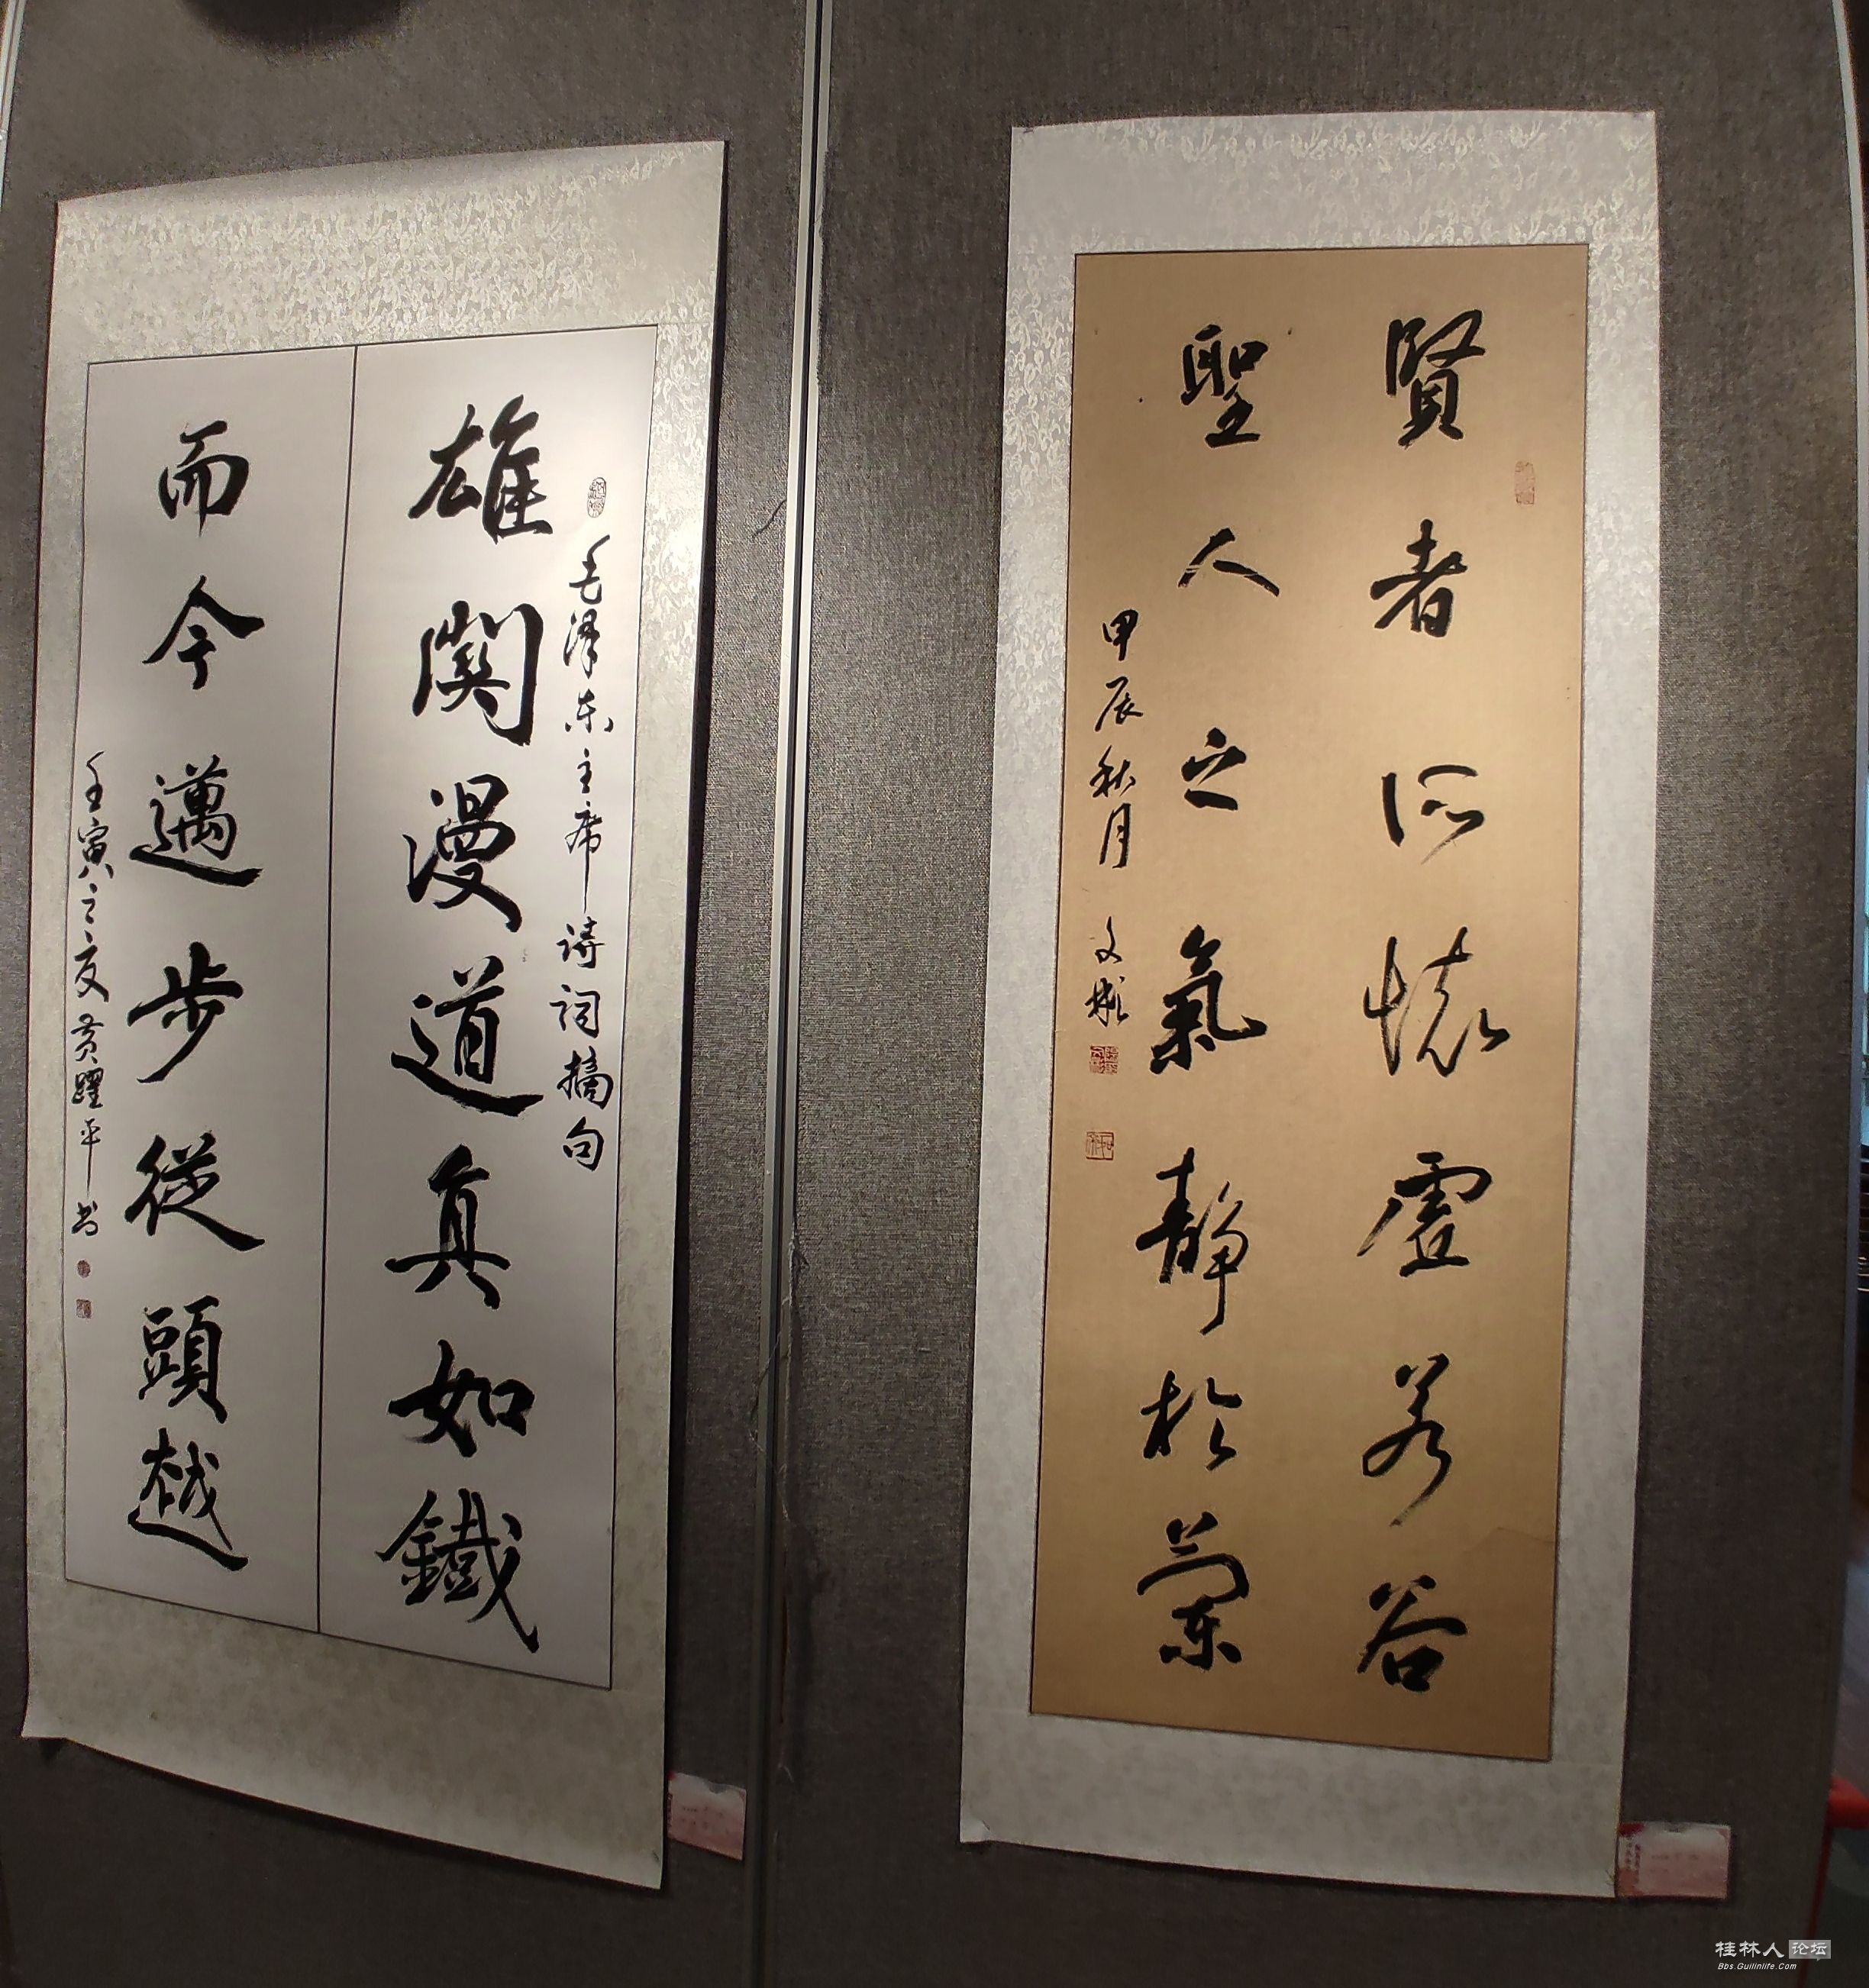 賢者所懷虛若谷
聖人之氣静於蘭
甲辰秋月 文
毛澤东主席诗词摘句
雄關漫道真如鐵
而今邁步從頭越
壬寅之夏黄躍平书
桂林人论坛
Bbs.Guilinlife.Com